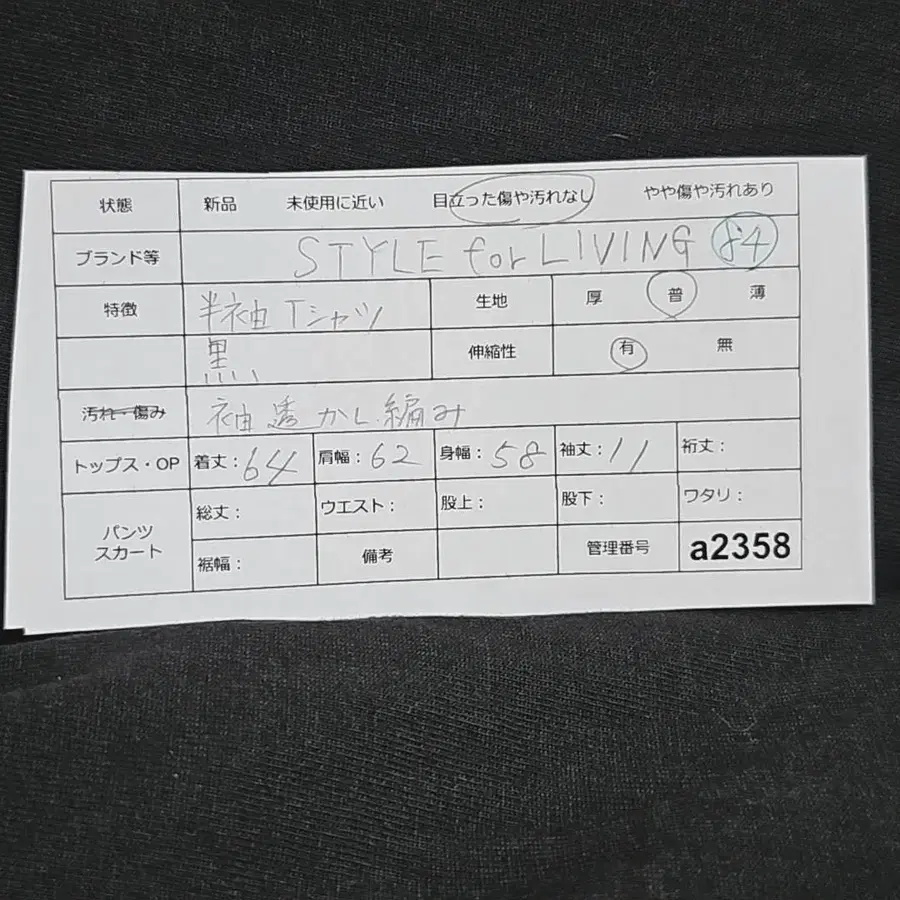 状態 新品 未使用に近い 目立った傷や汚れなし やや傷や汚れあり
ブランド等 STYLE for LIVING
特徴 半袖Tシャツ 生地 厚 普 薄
黒 伸縮性 有 無
汚れ・傷み 袖透かし編み
トップス・OP 着丈：64 肩幅：62 身幅：58 袖丈：11 裄丈：
パンツ 総丈： ウエスト： 股上： 股下： ワタリ：
スカート
裾幅： 備考 管理番号 a2358